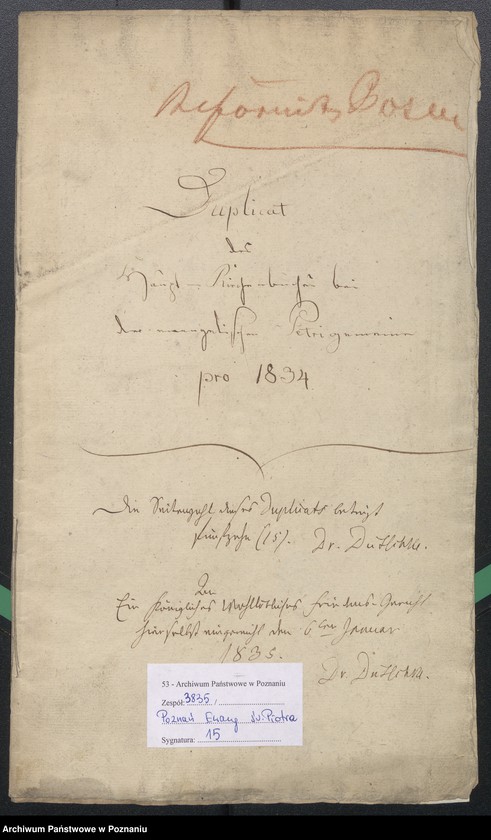 Reformirte Posen
Duplicat
des
Haupt-Kirchenbuches bei
der evangelischen Petrigemeine
pro 1834
Die Seitenzahl dieses Duplicats beträgt
fünfzehn (15). Dr. Dütschke.
An
Ein Königliches Wohllöbliches Friedens-Gericht
hierselbst eingereicht den 6ten Januar
1835.
Dr. Dütschke.
53 - Archiwum Państwowe w Poznaniu
Zespół: 3835,
Poznań Ewang św. Piotra
Sygnatura: 15
Archiwum Państwowe w Poznaniu
Archiwum Państwowe w Poznaniu